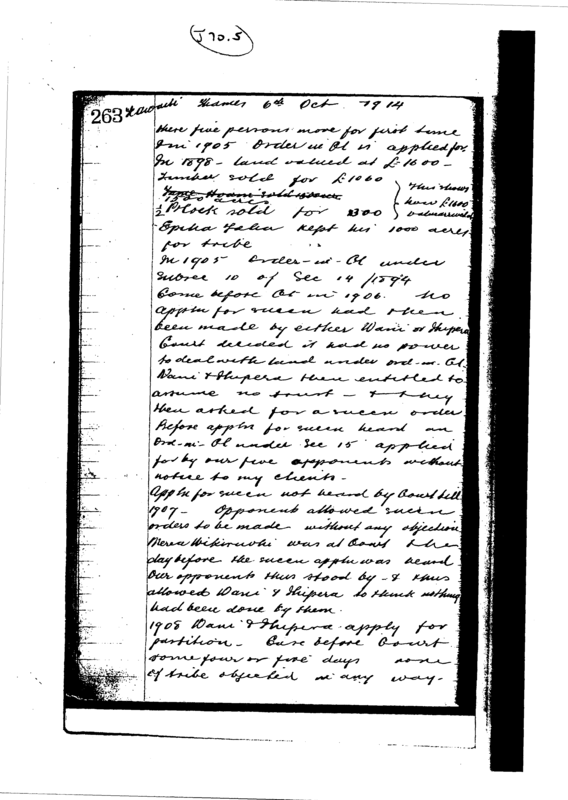 J 70.5
263 Thames 6th Oct 1914
these five persons move for first time
& in 1905 Order in Cl is applied for.
In 1898 - land valued at £1600 -
Timber sold for £1060
This shows
how £1600
1500 acres
½ Block sold for 1300
kept his 1000 acres
for tribe
In 1905 Order-in-Cl under
subsec 10 of Sec 14 / 1894
Come before Ct in 1906. No
appln for succn had then
been made by either Wani or Ihipera
Court decided it had no power
to deal with land under ord-in-Cl.
Wani & Ihipera then entitled to
assume no trust - & they
then asked for a succn order
Before appln for succn heard an
Ord-in-Cl under Sec 15 applied
for by our five opponents without
notice to my clients -
Appln for succn not heard by Court till
1907 - Opponents allowed succn
orders to be made without any objection
was at Court the
day before the succn appln was heard
Our opponents thus stood by - & thus
allowed Wani & Ihipera to think nothing
had been done by them.
1908 Wani & Ihipera apply for
partition - Case before Court
some four or five days none
of tribe objected in any way -